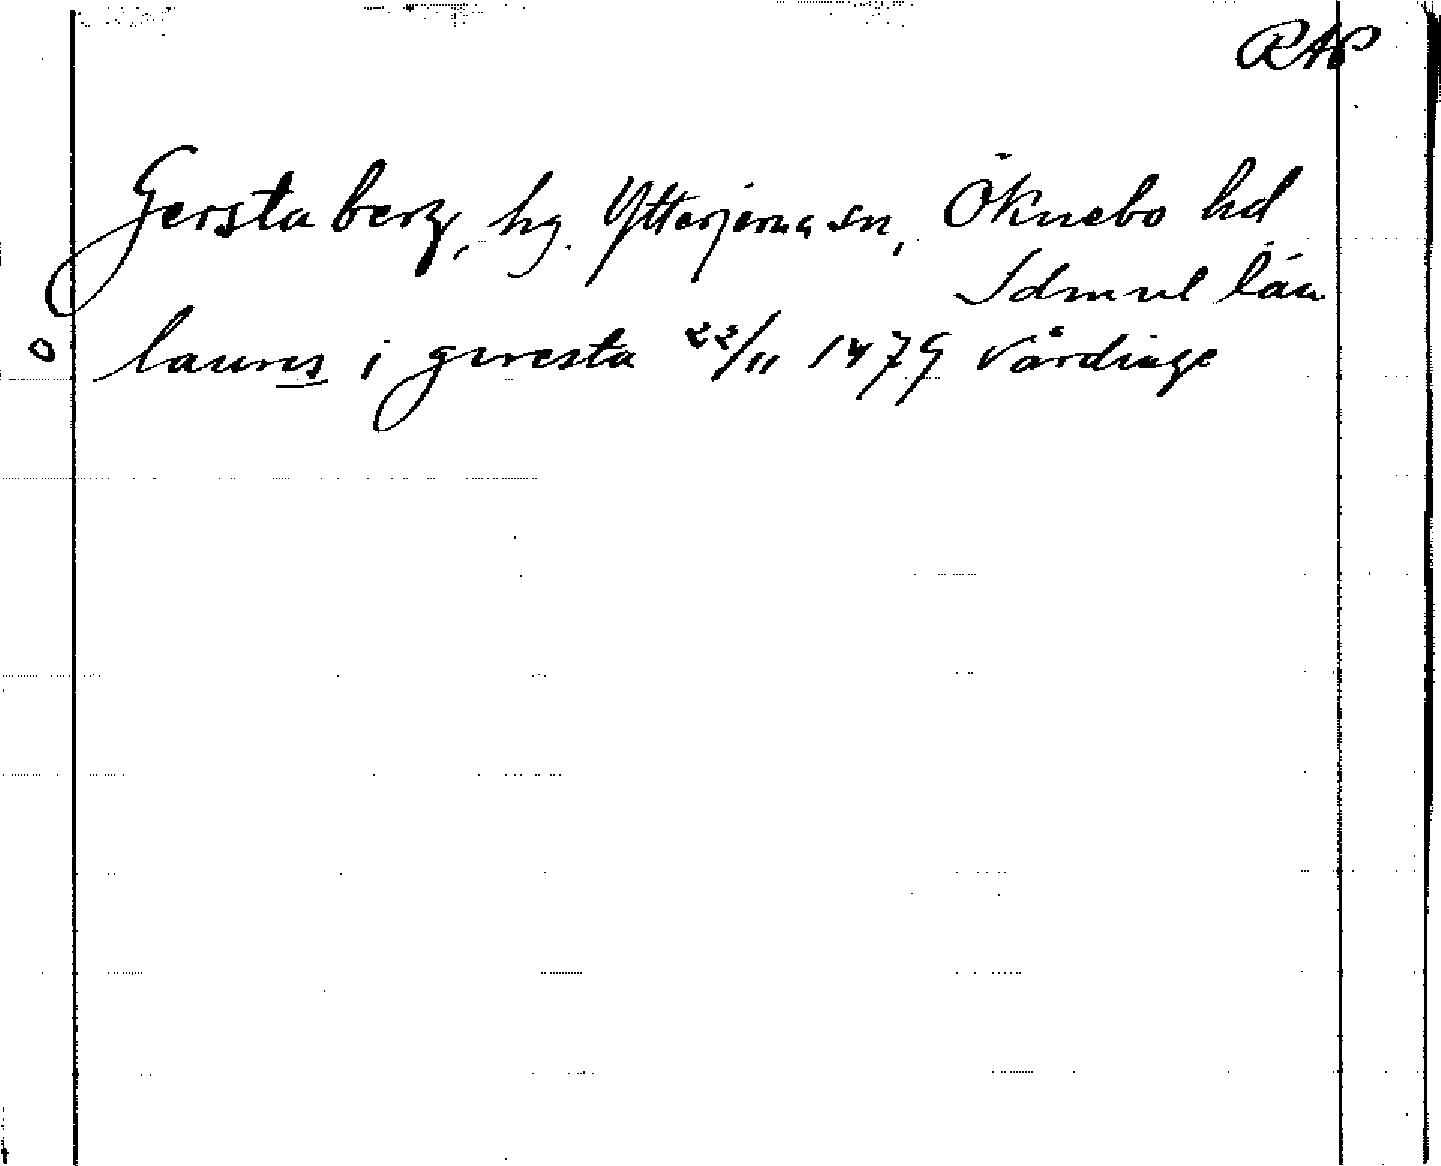 RAP
Gerstaberg, hg. Ytterjerna sn, Öknebo hd
Sdmnl län
laurns i giresta 22/11 1479 Vårdinge